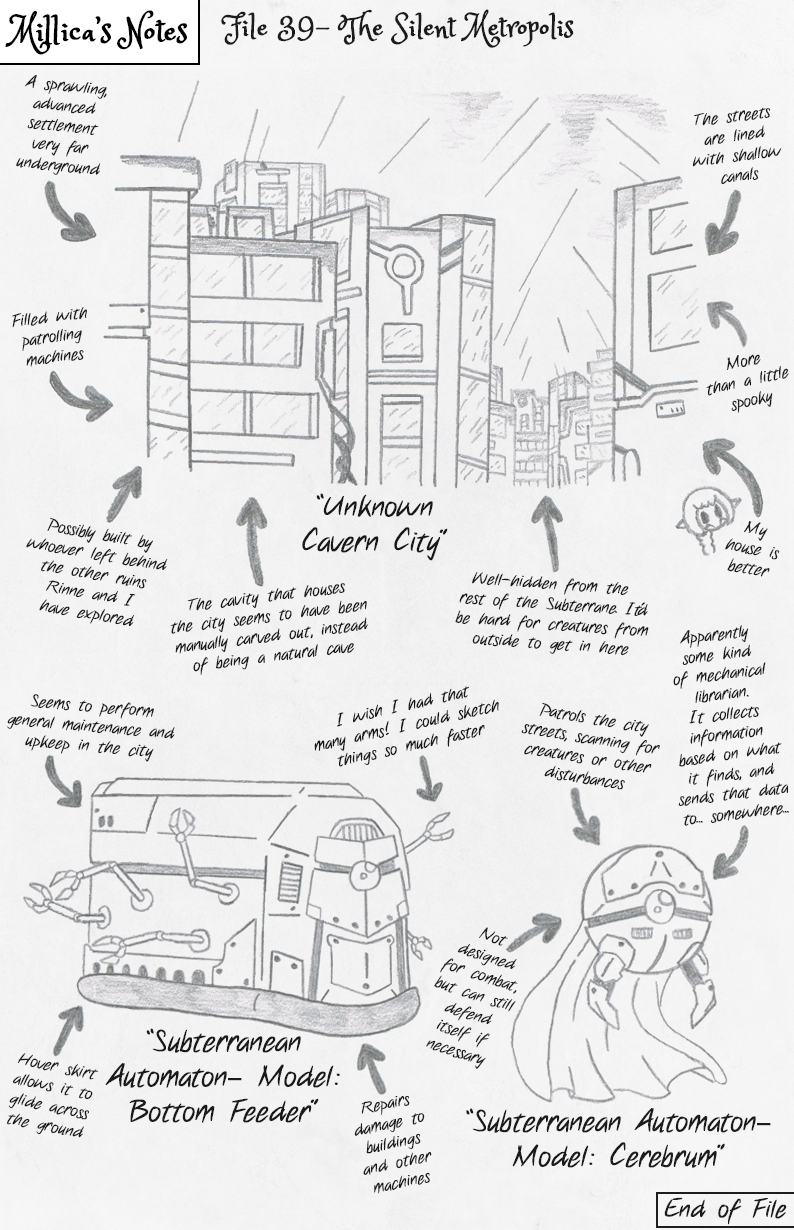 Millica's Notes
File 39– The Silent Metropolis
A sprawling,
advanced
settlement
very far
underground
The streets
are lined
with shallow
canals
Filled with
patrolling
machines
More
than a little
spooky
My
house is
better
Possibly built by
whoever left behind
the other ruins
Rinne and I
have explored
The cavity that houses
the city seems to have been
manually carved out, instead
of being a natural cave
"Unknown
Cavern City"
Well-hidden from the
rest of the Subterrane. It'd
be hard for creatures from
outside to get in here
Seems to perform
general maintenance and
upkeep in the city
I wish I had that
many arms! I could sketch
things so much faster
Patrols the city
streets, scanning for
creatures or other
disturbances
Apparently
some kind
of mechanical
librarian.
It collects
information
based on what
it finds, and
sends that data
to... somewhere...
Not
designed
for combat,
but can still
defend
itself if
necessary
Hover skirt
allows it to
glide across
the ground
"Subterranean
Automaton– Model:
Bottom Feeder"
Repairs
damage to
buildings
and other
machines
"Subterranean Automaton–
Model: Cerebrum"
End of File